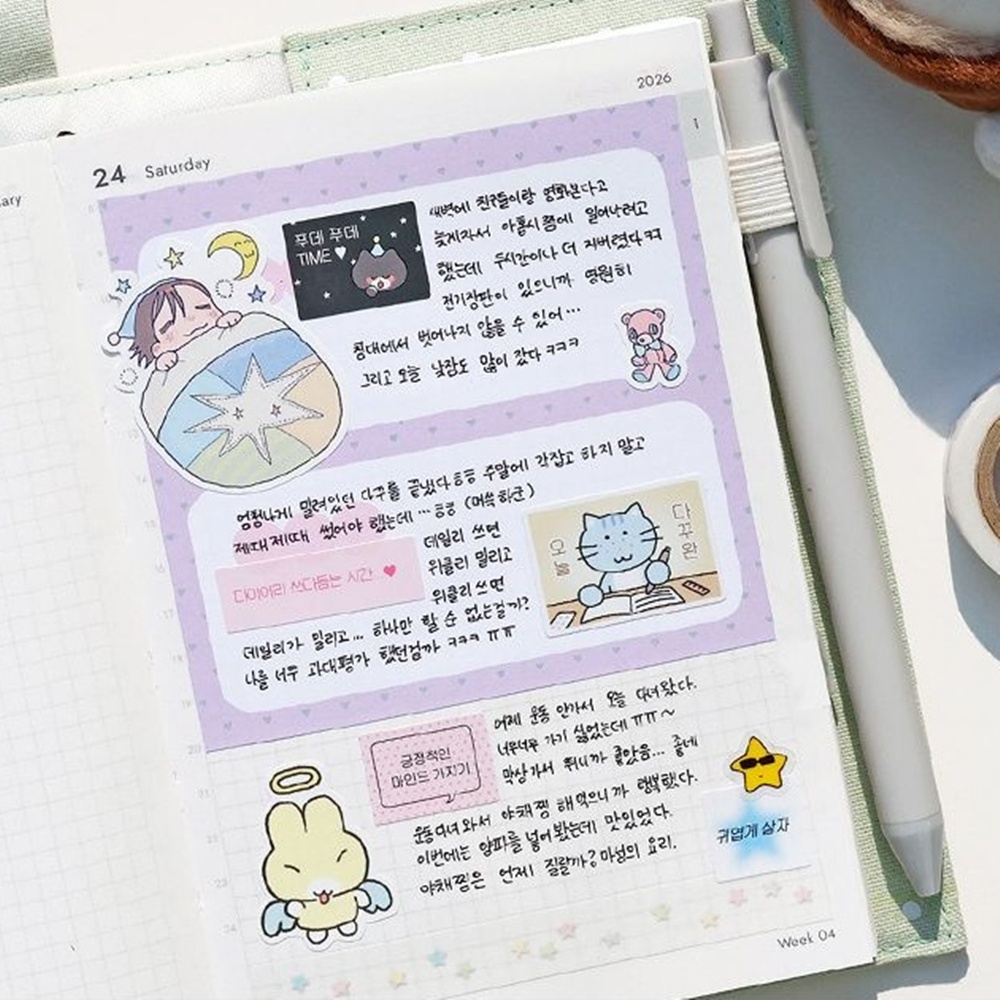 2026
1
24 Saturday
푸데 푸데
TIME ♥
새벽에 친구들이랑 영화본다고
늦게자서 아홉시쯤에 일어나려고
했는데 두시간이나 더 자버렸다ㅋㅋ
전기장판이 있으니까 영원히
침대에서 벗어나지 않을 수 있어...
그리고 오늘 낮잠도 많이 잤다 ㅋㅋㅋ
엄청나게 밀려있던 다꾸를 끝냈다 ㅎㅎ 주말에 각잡고 하지 말고
제때제때 썼어야 했는데... ㅎㅎ (머쓱하군)
데일리 쓰면
위클리 밀리고
위클리 쓰면
다이어리 쓰다듬는 시간 ♥
오늘
다꾸 완
데일리가 밀리고... 하나만 할 순 없는걸까?
나를 너무 과대평가 했던걸까 ㅋㅋㅋ ㅠㅠ
긍정적인
마인드 가지기
어제 운동 안가서 오늘 다녀왔다.
너무너무 가기 싫었는데 ㅠㅠ~
막상가서 뛰니까 좋았음... 좋네
운동다녀와서 야채찜 해먹으니까 행복했다.
이번에는 양파를 넣어봤는데 맛있었다.
야채찜은 언제 질릴까? 마성의 요리.
귀엽게 살자
20
21
23
24
Week 04